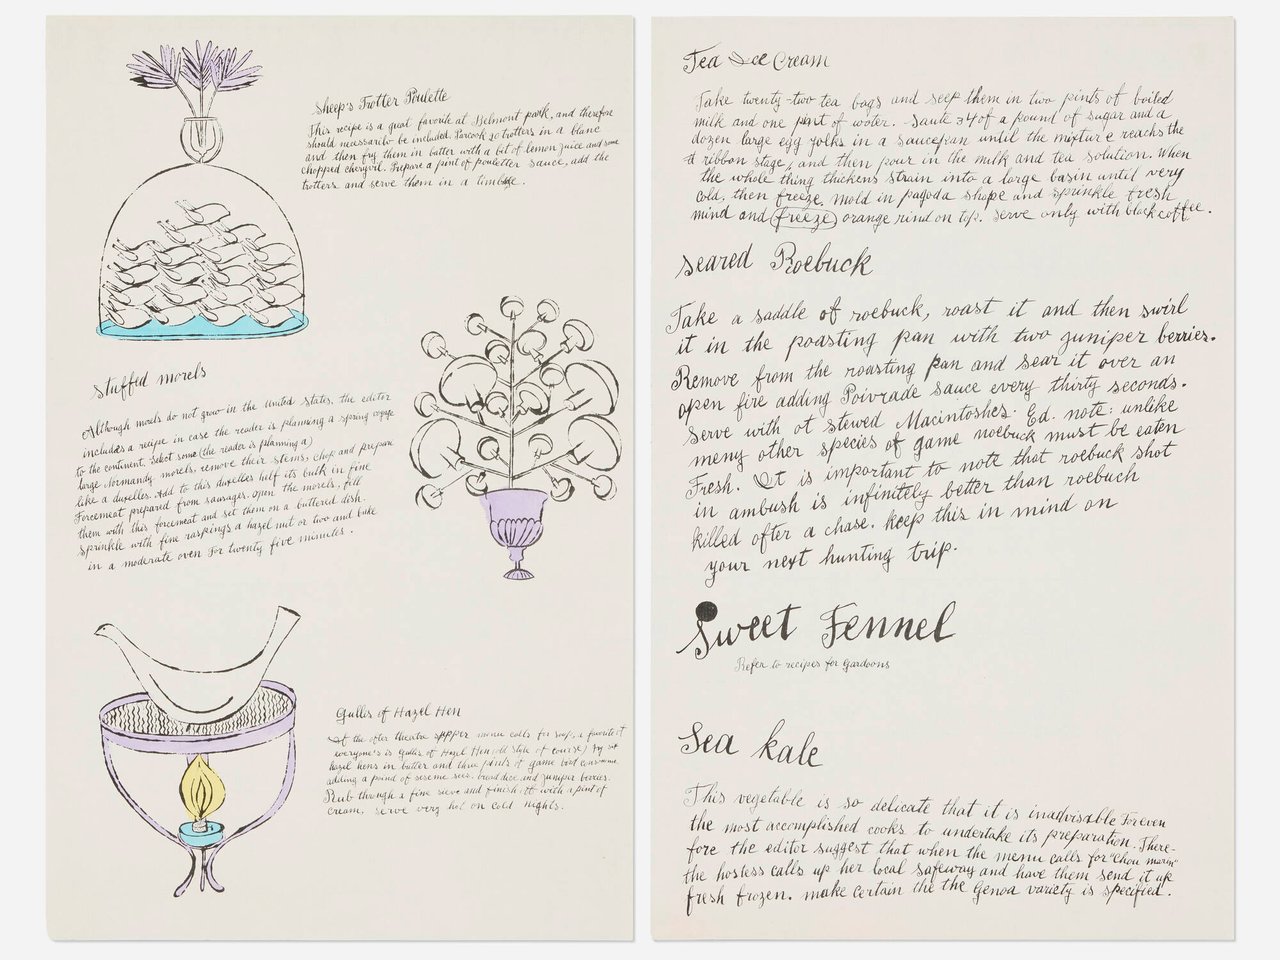 Sheep's Trotter Poulette
This recipe is a great favorite at Belmont park, and therefore
should necessarily be included. Parcook 20 trotters in a blanc
and then fry them in batter with a bit of lemon juice and some
chopped chervil. Prepare a pint of pouletter sauce, add the
trotters and serve them in a timbale.
Stuffed morels
Although morels do not grow in the United States, the editor
includes a recipe in case the reader is planning a spring
to the continent. Select some (the reader is planning a)
large Normandy morels, remove their stems, chop and prepare
like a duxelles. Add to this duxelles half its bulk in fine
Forcemeat prepared from sausages. Open the morels, fill
them with this forcemeat and set them on a buttered dish.
sprinkle with fine raspings a hazel nut or two and bake
in a moderate oven for twenty five minutes.
Gullis of Hazel Hen
If the after theatre supper menu calls for soup, a favorite of
everyone's is Gullis of Hazel Hen (old style of course) Fry six
hazel hens in butter and three pints of game bird consomme,
adding a pound of sesame seed, bread dice and juniper berries.
Rub through a fine sieve and finish it with a pint of
cream, serve very hot on cold nights.
Tea Ice Cream
Take twenty-two tea bags and seep them in two pints of boiled
milk and one pint of water. Saute 3/4 of a pound of sugar and a
dozen large egg yolks in a saucepan until the mixture reaches the
ribbon stage, and then pour in the milk and tea solution. When
the whole thing thickens strain into a large basin until very
cold, then freeze. mold in pagoda shape and sprinkle fresh
mind and (freeze) orange rind on top. Serve only with black coffee.
Seared Roebuck
Take a saddle of roebuck, roast it and then swirl
it in the roasting pan with two juniper berries.
Remove from the roasting pan and sear it over an
open fire adding Poivrade sauce every thirty seconds.
Serve with ot stewed Macintoshes. Ed. note: unlike
meny other species of game roebuck must be eaten
Fresh. It is important to note that roebuck shot
in ambush is infinitely better than roebuch
killed after a chase. keep this in mind on
your next hunting trip.
Sweet Fennel
Refer to recipes for Gardoons
Sea kale
This vegetable is so delicate that it is inadvisable For even
the most accomplished cooks to undertake its preparation. There-
fore the editor suggest that when the menu calls for "Chou marin"
the hostess calls up her local safeway and have them send it up
fresh frozen. make certain the the Genoa variety is specified.